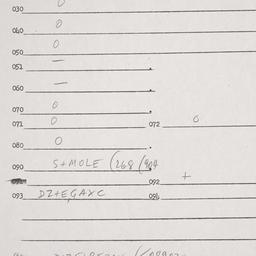 030 0
040 0
050 0
051 —
060 —
070 0
071 0 072 0
080 0
090 S+MOLE (268/904
092 +
093 DZ+EGAXC 096